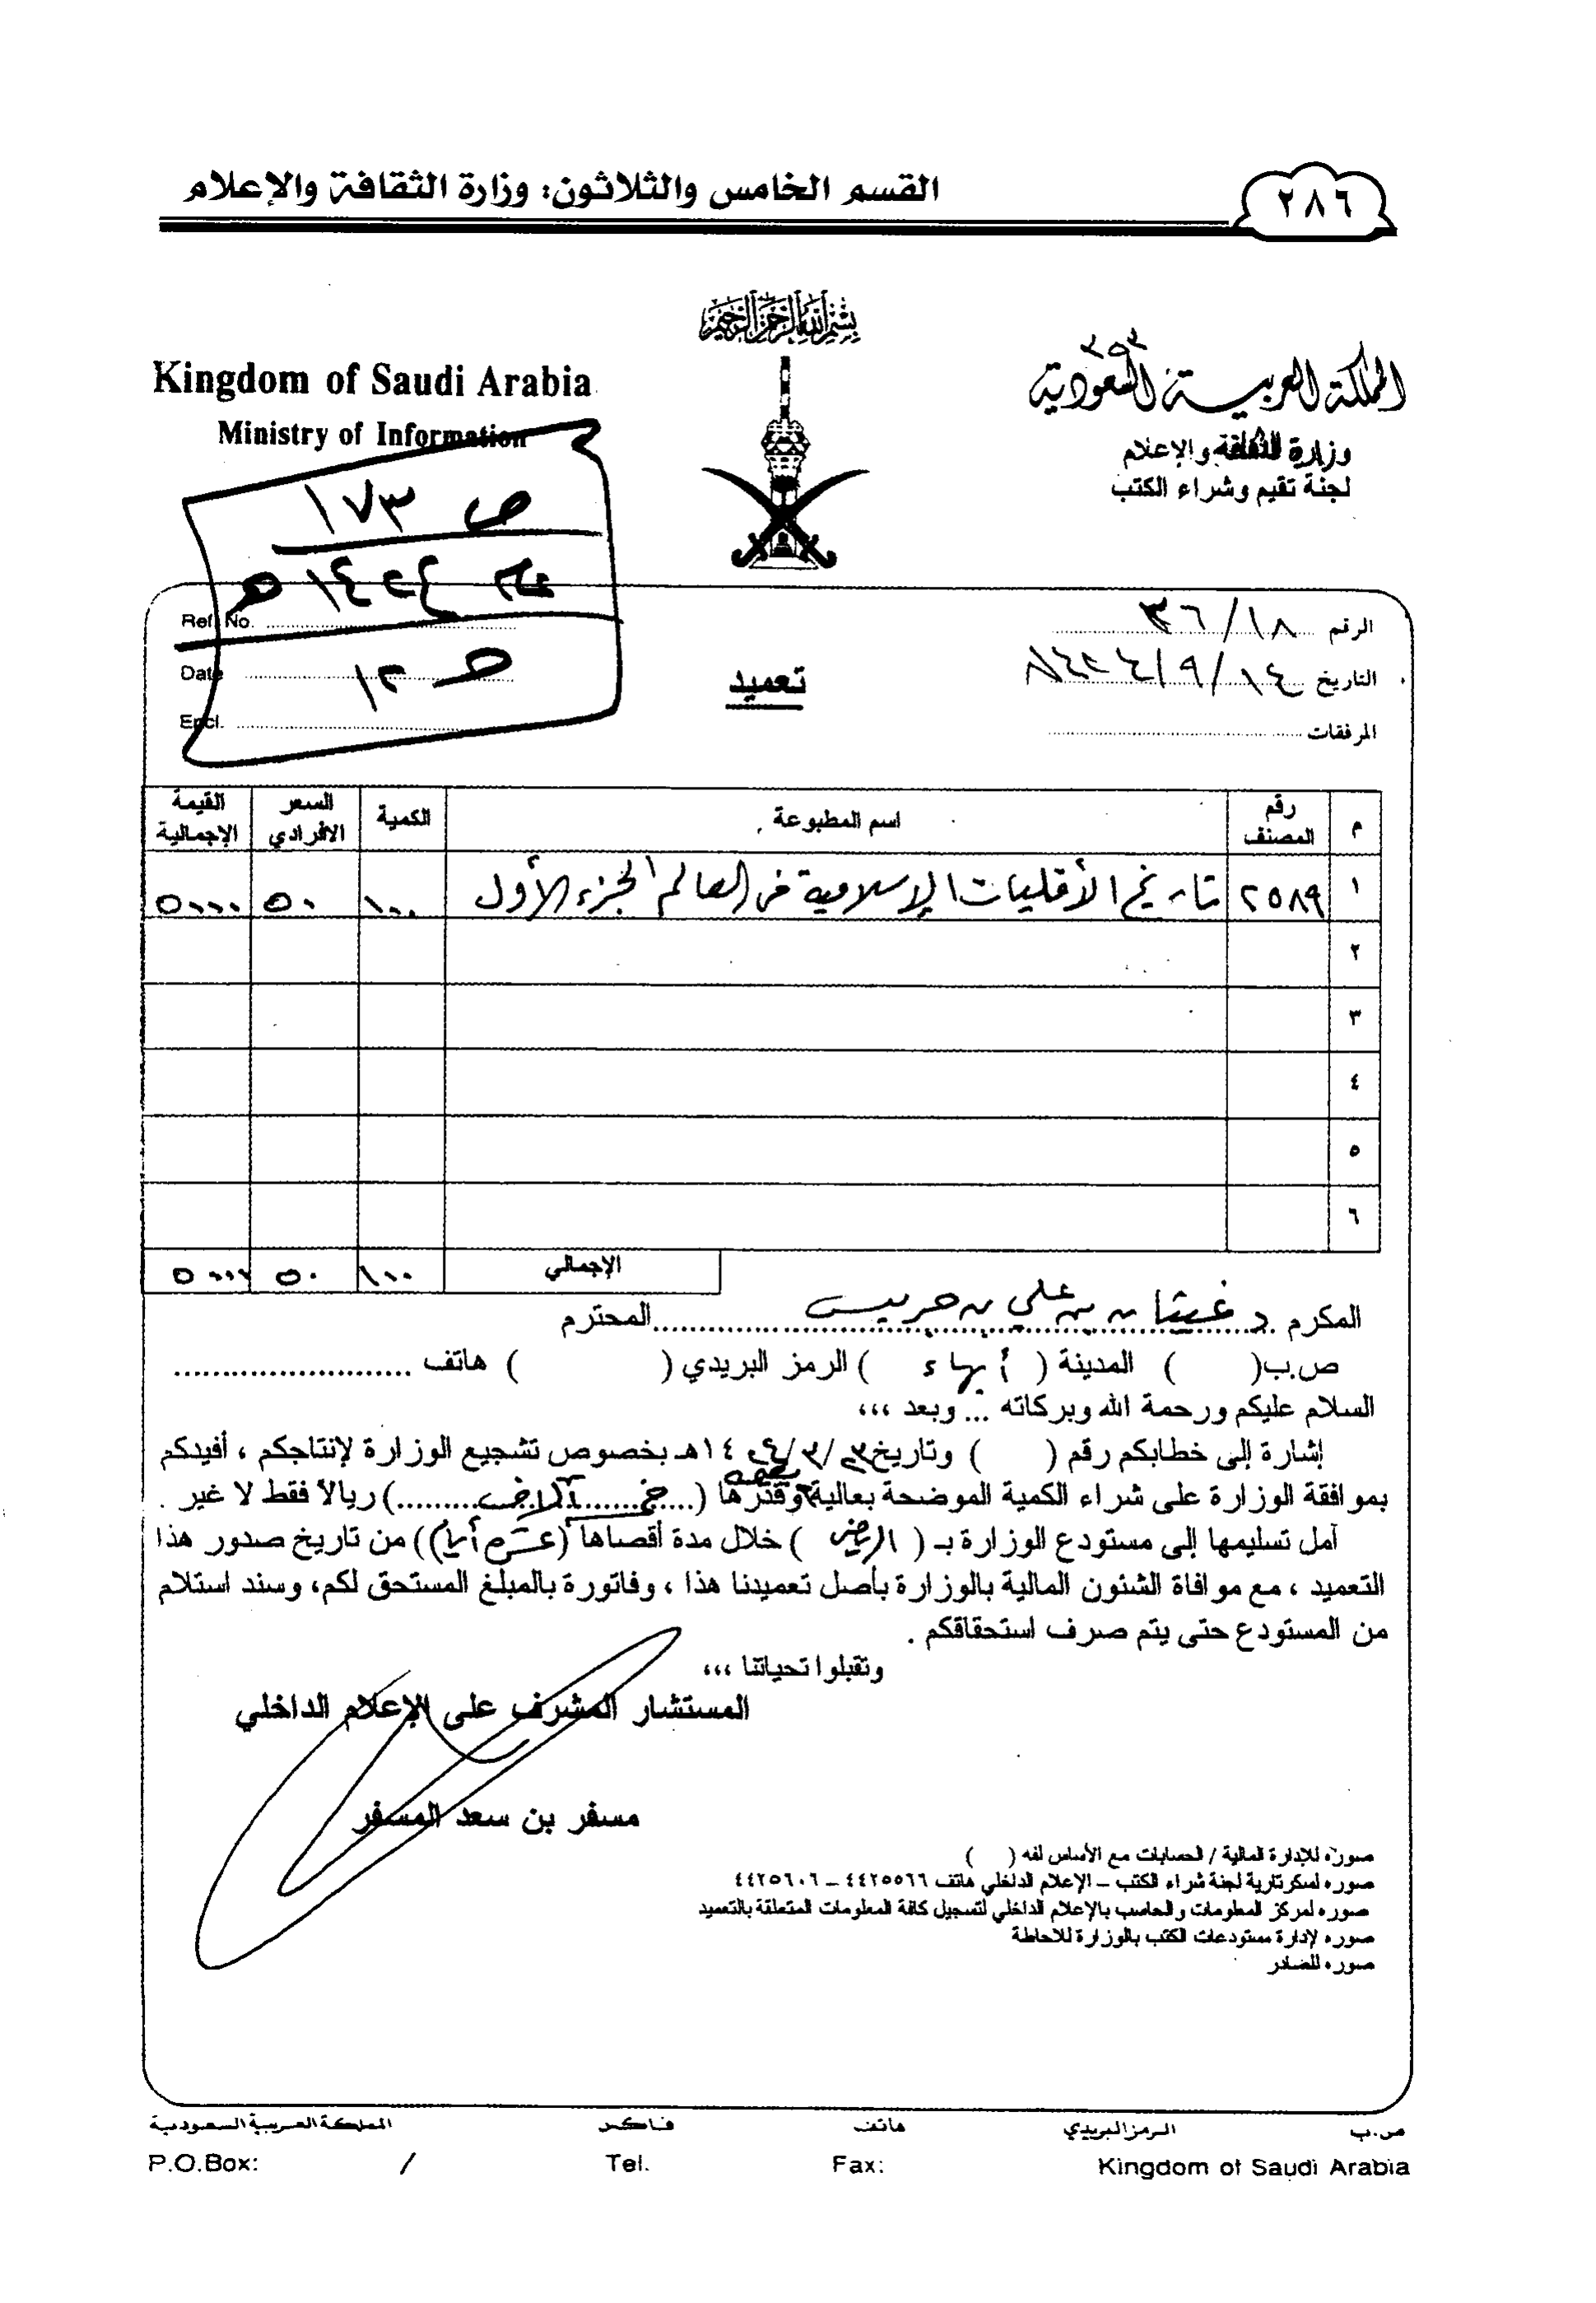 ٢٨٦
القسم الخامس والثلاثون: وزارة الثقافة والإعلام
بسم الله الرحمن الرحيم
Kingdom of Saudi Arabia
Ministry of Information
٣٥٣
المملكة العربية السعودية
وزارة الثقافة والإعلام
لجنة تقيم وشراء الكتب
ص ١٧٣
١٤٢٤ هـ
ح ١٢
Ref. No.
Date
Encl.
تعميد
الرقم ٣٦/١٨
التاريخ ١٤/٩/١٤٢٤هـ
المرفقات
م رقم المصنف اسم المطبوعة الكمية السعر الافرادي القيمة الإجمالية
١ ٢٥٨٩ تاريخ الأقليات الإسلامية في العالم الجزء الأول ١٠٠ ٥٠ ٥٠٠٠
٢
٣
٤
٥
٦
الإجمالي ١٠٠ ٥٠ ٥٠٠٠
المكرم د. غيثان بن علي بن جريس المحترم
ص.ب( ) المدينة ( أبهاء ) الرمز البريدي ( ) هاتف
السلام عليكم ورحمة الله وبركاته ... وبعد ،،،
إشارة إلى خطابكم رقم ( ) وتاريخ ١٤هـ بخصوص تشجيع الوزارة لإنتاجكم ، أفيدكم
بموافقة الوزارة على شراء الكمية الموضحة بعالية وقدرها (خمسة آلاف) ريالاً فقط لا غير .
آمل تسليمها إلى مستودع الوزارة بـ ( الرياض ) خلال مدة أقصاها (عشرة أيام) من تاريخ صدور هذا
التعميد ، مع موافاة الشئون المالية بالوزارة بأصل تعميدنا هذا ، وفاتورة بالمبلغ المستحق لكم، وسند استلام
من المستودع حتى يتم صرف استحقاقكم .
وتقبلوا تحياتنا ،،،
المستشار المشرف على الإعلام الداخلي
مسفر بن سعد المسفر
صوره للإدارة المالية / الحسابات مع الأساس لفه ( )
صوره لسكرتارية لجنة شراء الكتب – الإعلام الداخلي هاتف ٤٤٢٥٥٦٦ – ٤٤٢٥٦٠٦
صوره لمركز المعلومات والحاسب بالإعلام الداخلي لتسجيل كافة المعلومات المتعلقة بالتعميد
صوره لإدارة مستودعات الكتب بالوزارة للاحاطة
صوره للصادر
ص.ب الرمز البريدي هاتف فاكس المملكة العربية السعودية
P.O.Box: / Tel. Fax: Kingdom of Saudi Arabia